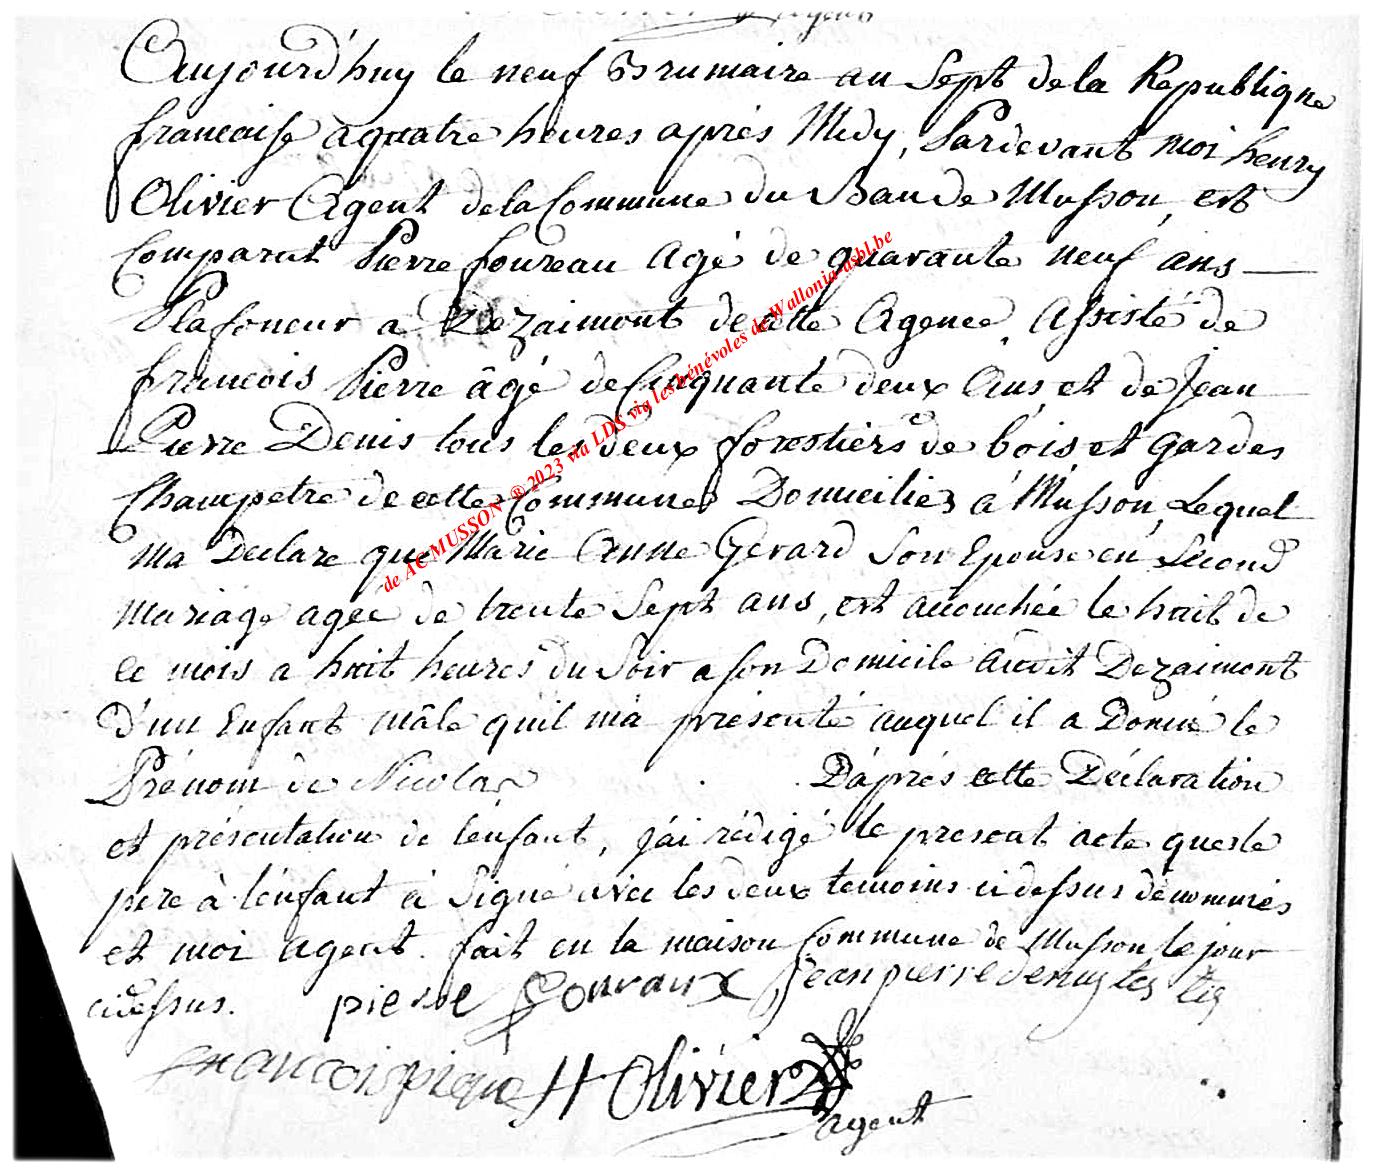 agent
Aujourd'huy le neuf Brumaire an Sept de la Republique
francaise a quatre heures après Midy, Pardevant moi henry
Olivier Agent de la Commune du Ban de Musson, est
Comparut Pierre foureau Agé de quarante neuf ans
Plafoneur a Dezaimont de cette Agence, Assisté de
francois Pierre âgé de Cinquante deux Ans, et de Jean
Pierre Denis tous les deux forestiers de bois et gardes
Champetre de cette Commune Domiciliés à Musson, Lequel
ma Declare que Marie Anne Gerard Son Epouse en Second
Mariage agée de trente Sept ans, est accouchée le huit de
ce mois a huit heures du Soir a son Domicile Audit Dezaimont
D'un Enfant mâle qu'il m'a présenté auquel il a Donné le
Prénom de Nicolas D'après cette Déclaration
et présentation de l'enfant, j'ai rédigé le present acte que le
pere à l'enfant à Signé avec les deux temoins ci dessus dénommés
et moi agent. fait en la maison Commune de Musson le jour
cidessus. pierre Fouraux Jean pierre denis
francois pierre H Olivier
agent
de AC MUSSON ® 2023 via LDS via les bénévoles de Wallonia-asbl.be